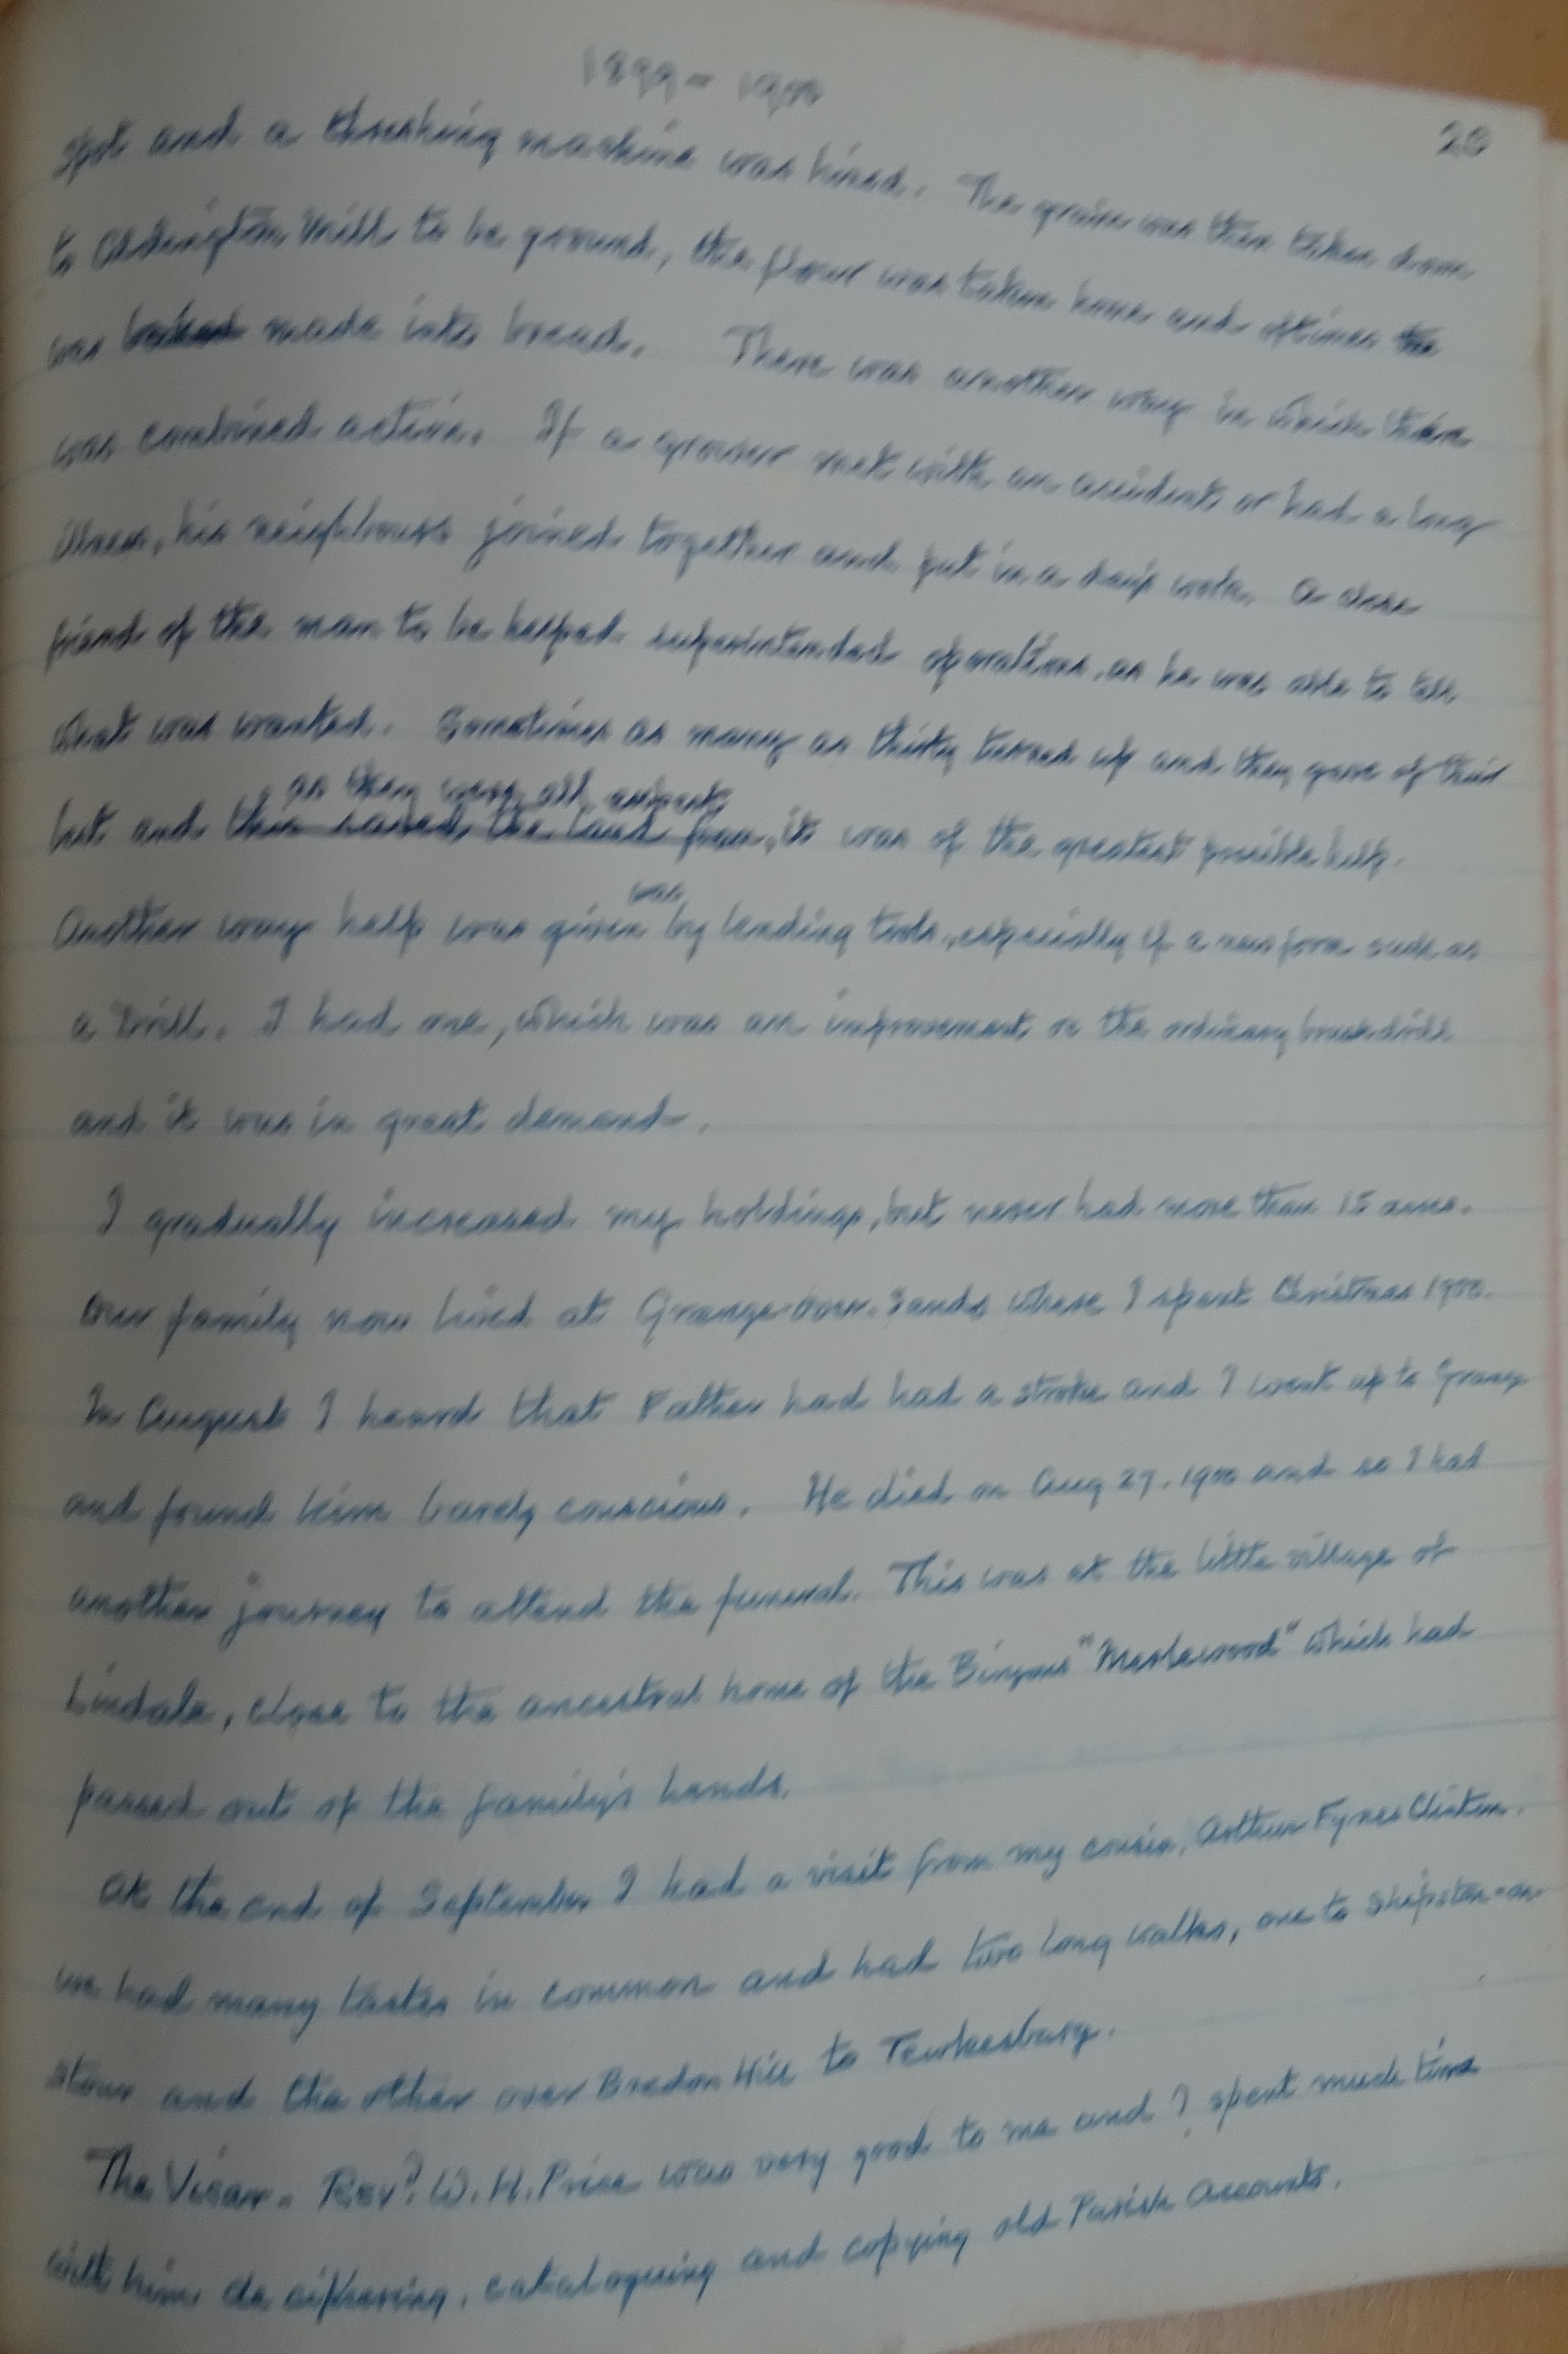 1899 - 1900
20
spot and a threshing machine was hired. The grain was then taken down
to Aldington Mill to be ground, the flour was taken home and oftimes the
was baked made into bread. There was another way in which there
was combined action. If a grower met with an accident or had a long
illness, his neighbours joined together and put in a day's work. A close
friend of the man to be helped superintended operations, as he was able to tell
what was wanted. Sometimes as many as thirty turned up and they gave of their
as they were all experts
best and this the land it was of the greatest possible help.
was
Another way help was given by lending tools, especially if a new form such as
a Drill. I had one, which was an improvement on the ordinary drill
and it was in great demand.
I gradually increased my holdings, but never had more than 15 acres.
Our family now lived at Grange-over-Sands where I spent Christmas 1900.
In August I heard that Father had had a stroke and I went up to Grange
and found him barely conscious. He died on Aug 27. 1900 and so I had
another journey to attend the funeral. This was at the little village of
Lindale, close to the ancestral home of the which had
passed out of the family's hands.
At the end of September I had a visit from my cousin, Arthur Fynes Clinton.
we had many tastes in common and had two long walks, one to Shipston-on-
stour and the other over Bredon Hill to Tewkesbury.
The Vicar. Revd. W. H. Price was very good to me and I spent much time
with him deciphering, cataloguing and copying old Parish Accounts.